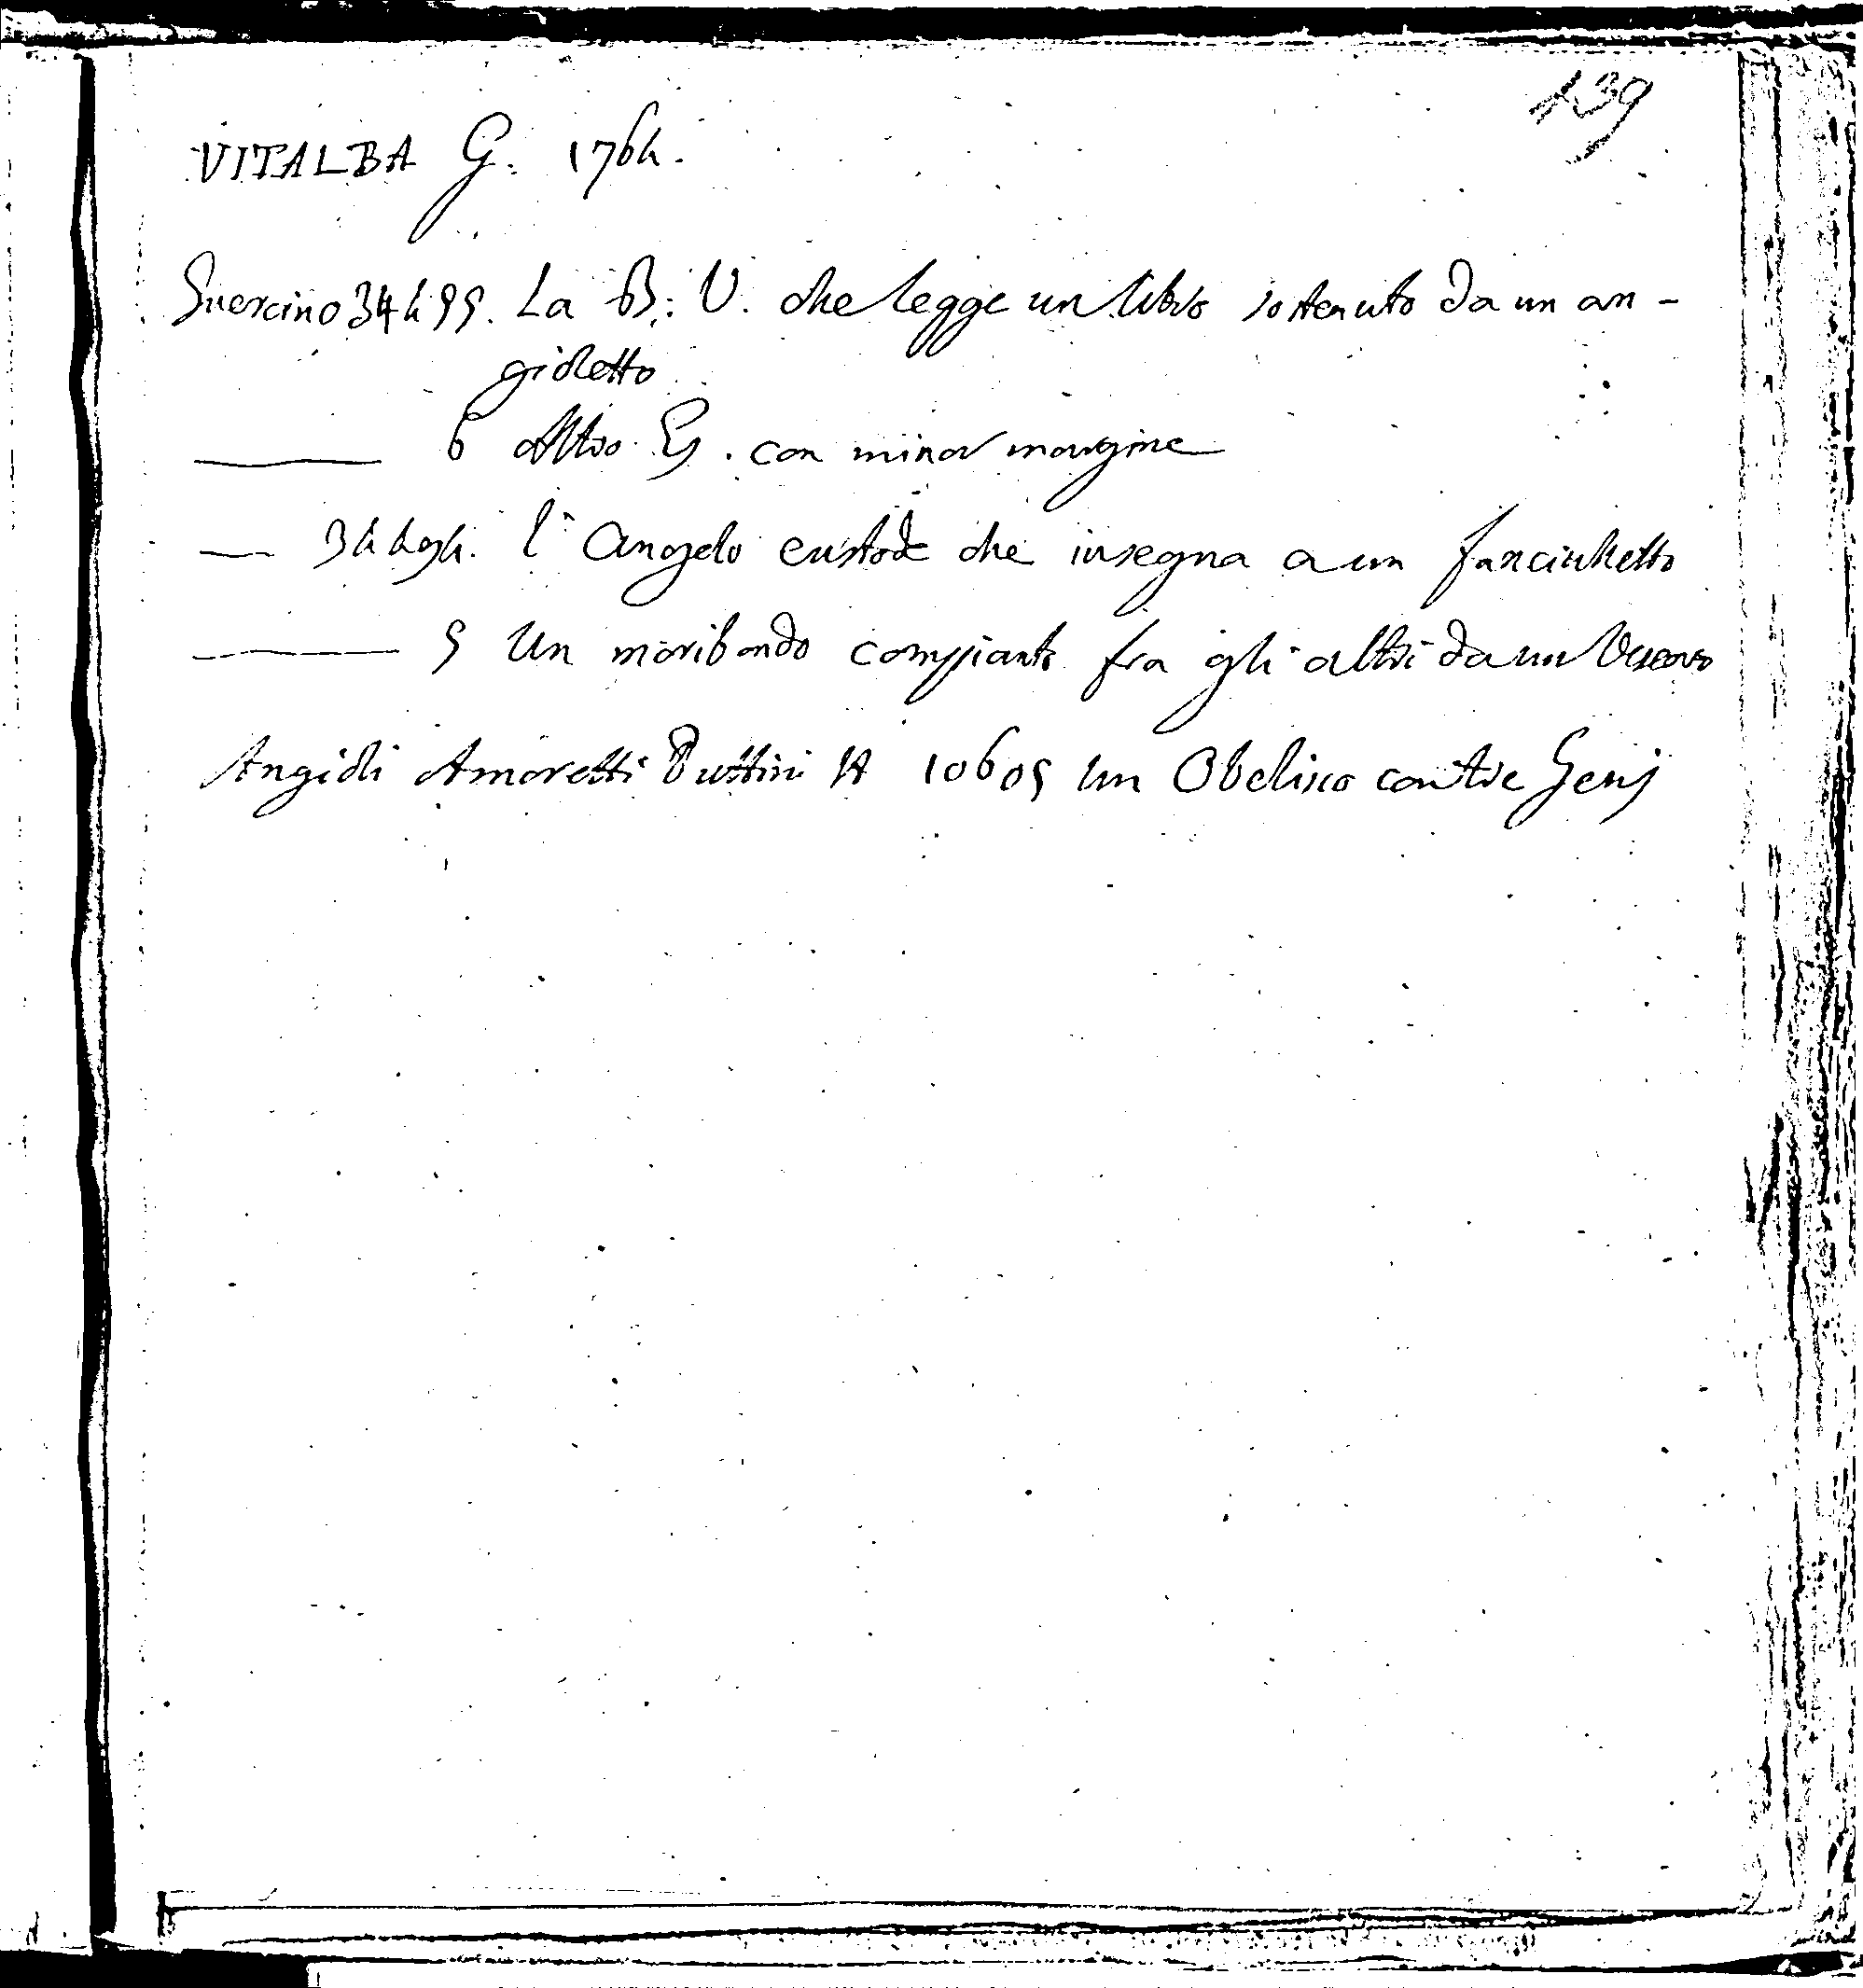 139
VITALBA G. 1764.
Guercino 34499. La B. V. che legge un libro sostenuto da un an-
gioletto
——— 6 Altro Es. con minor margine
— 34494. l'Angelo custode che insegna a un fanciulletto
——— 5 Un moribondo compianto fra gli altri da un Vescovo
Angioli Amoretti Puttini A 10605 un Obelisco con tre Genj